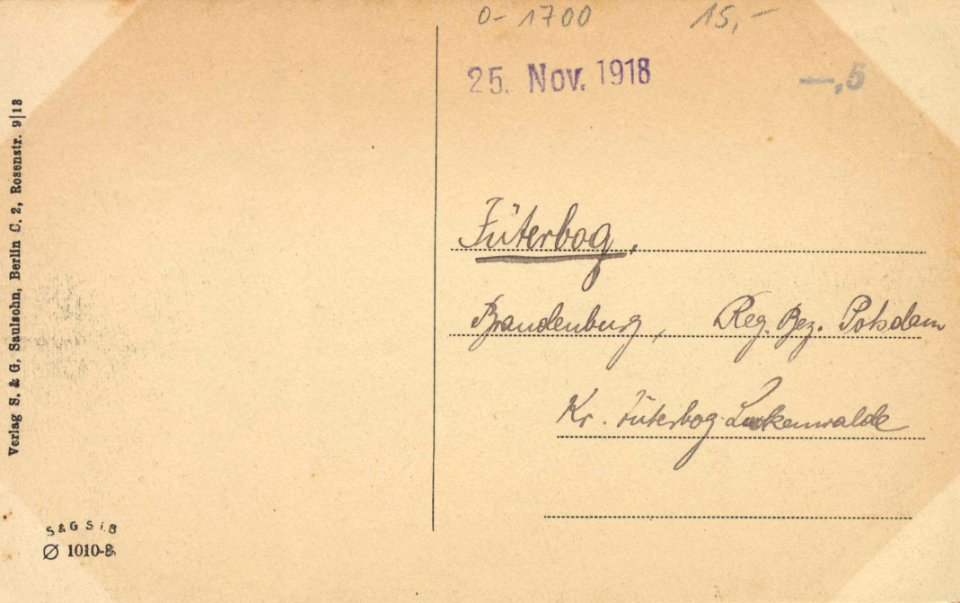 0-1700 15,-
25. Nov. 1918 —,5
Jüterbog,
Brandenburg, Reg. Bez. Potsdam
Kr. Jüterbog-Luckenwalde
Verlag S. & G. Saulsohn, Berlin C. 2, Rosenstr. 9|18
S & G S i. B
Ø 1010-8.